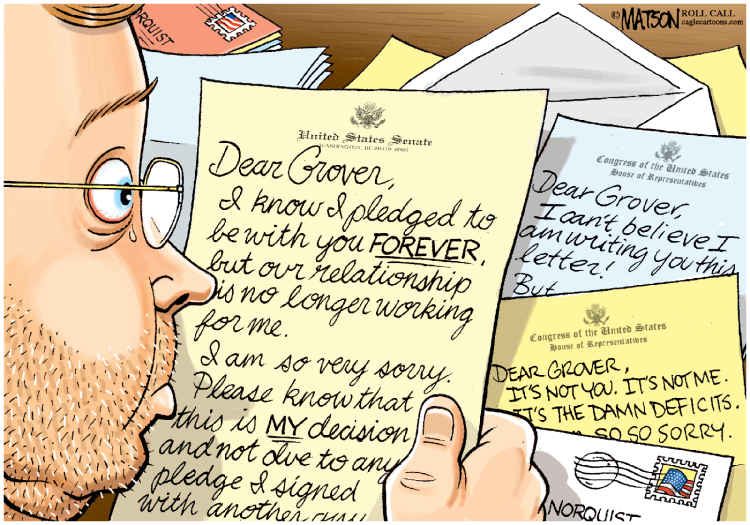 RQUIST
© MATSON ROLL CALL
caglecartoons.com
United States Senate
WASHINGTON, DC 20510-0905
Dear Grover,
I know I pledged to
be with you FOREVER,
but our relationship
is no longer working
for me.
I am so very sorry.
Please know that
this is MY decision
and not due to any
pledge I signed
with another guy
Congress of the United States
House of Representatives
Dear Grover,
I can't believe I
am writing you this
letter!
But
Congress of the United States
House of Representatives
DEAR GROVER,
IT'S NOT YOU. IT'S NOT ME.
IT'S THE DAMN DEFICITS.
SO SO SORRY.
NORQUIST